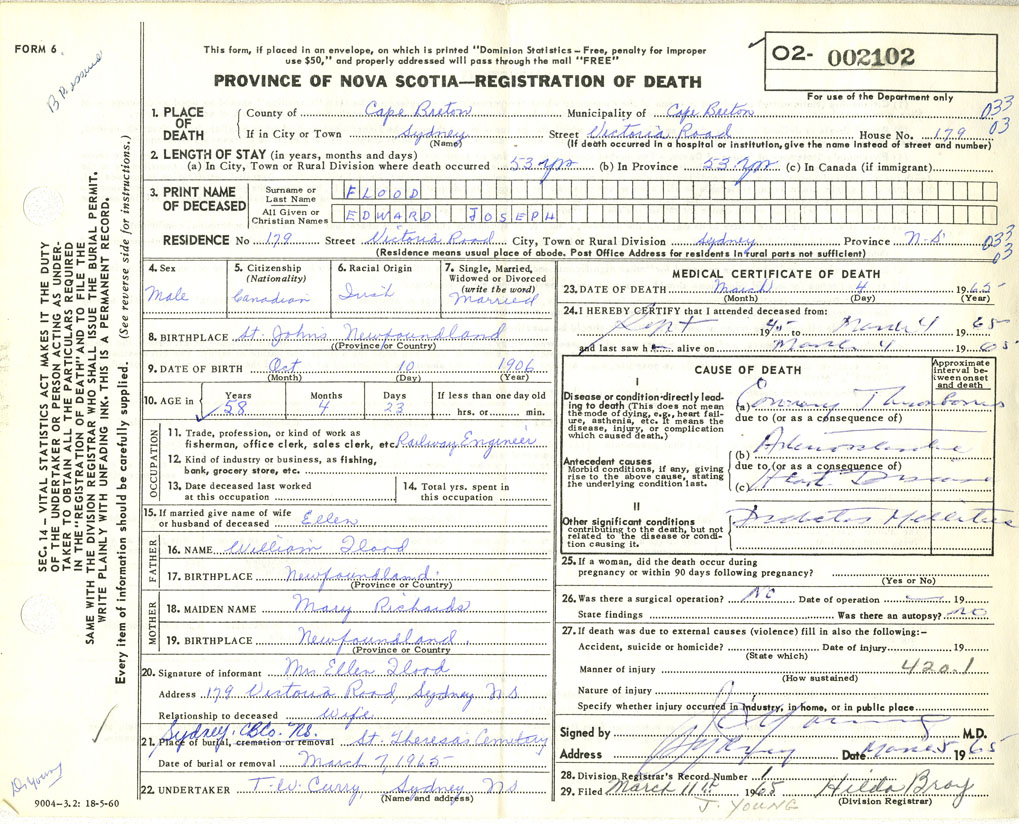 FORM 6
B Pressure
This form, if placed in an envelope, on which is printed "Dominion Statistics – Free, penalty for improper
use $50," and properly addressed will pass through the mail "FREE"
PROVINCE OF NOVA SCOTIA—REGISTRATION OF DEATH
02- 002102
For use of the Department only
1. PLACE OF DEATH
County of Cape Breton Municipality of Cape Breton 033
If in City or Town Sydney Street Victoria Road House No. 179 03
(Name) (If death occurred in a hospital or institution, give the name instead of street and number)
2. LENGTH OF STAY (in years, months and days)
(a) In City, Town or Rural Division where death occurred 53 yrs (b) In Province 53 yrs (c) In Canada (if immigrant)
3. PRINT NAME OF DECEASED
Surname or Last Name FLOOD
All Given or Christian Names EDWARD JOSEPH
RESIDENCE No 179 Street Victoria Road City, Town or Rural Division Sydney Province N-S 033
03
(Residence means usual place of abode. Post Office Address for residents in rural parts not sufficient)
4. Sex Male
5. Citizenship (Nationality) Canadian
6. Racial Origin Irish
7. Single, Married, Widowed or Divorced (write the word) Married
8. BIRTHPLACE St. John's Newfoundland
(Province or Country)
9. DATE OF BIRTH Oct 10 1906
(Month) (Day) (Year)
10. AGE in Years 58 Months 4 Days 23 If less than one day old
hrs. or min.
OCCUPATION
11. Trade, profession, or kind of work as
fisherman, office clerk, sales clerk, etc. Railway Engineer
12. Kind of industry or business, as fishing,
bank, grocery store, etc.
13. Date deceased last worked
at this occupation
14. Total yrs. spent in
this occupation
15. If married give name of wife
or husband of deceased Ellen
FATHER
16. NAME William Flood
17. BIRTHPLACE Newfoundland
(Province or Country)
MOTHER
18. MAIDEN NAME Mary Richards
19. BIRTHPLACE Newfoundland
(Province or Country
20. Signature of informant Mrs Ellen Flood
Address 179 Victoria Road, Sydney NS
Relationship to deceased Wife
Sydney, CBCo. NS.
21. Place of burial, cremation or removal St. Theresa's Cemetery
Date of burial or removal March 7, 1965
22. UNDERTAKER T.W. Curry, Sydney NS
(Name and address)
MEDICAL CERTIFICATE OF DEATH
23. DATE OF DEATH March 4 1965
(Month) (Day) (Year)
24. I HEREBY CERTIFY that I attended deceased from:
Sept 19 to March 4 65
and last saw h alive on March 4 1965
CAUSE OF DEATH
Approximate interval between onset and death
I
Disease or condition directly leading to death (This does not mean the mode of dying, e.g., heart failure, asthenia, etc. It means the disease, injury, or complication which caused death.)
(a) Coronary Thrombosis
due to (or as a consequence of)
Antecedent causes
Morbid conditions, if any, giving rise to the above cause, stating the underlying condition last.
(b) Arteriosclerotic
due to (or as a consequence of)
(c) Heart Disease
II
Other significant conditions contributing to the death, but not related to the disease or condition causing it.
Diabetes Mellitus
25. If a woman, did the death occur during
pregnancy or within 90 days following pregnancy?
(Yes or No)
26. Was there a surgical operation? No Date of operation — 19
State findings Was there an autopsy? no
27. If death was due to external causes (violence) fill in also the following:–
Accident, suicide or homicide? Date of injury 19
(State which)
Manner of injury 420.1
(How sustained)
Nature of injury
Specify whether injury occurred in industry, in home, or in public place
Signed by Young M.D.
Address Sydney Date March 5 1965
28. Division Registrar's Record Number 1
29. Filed March 11th 1965 Hilda Bray
(Division Registrar)
J. YOUNG
SEC. 14 – VITAL STATISTICS ACT MAKES IT THE DUTY
OF THE UNDERTAKER OR PERSON ACTING AS UNDER-
TAKER TO OBTAIN ALL THE PARTICULARS REQUIRED
IN THE "REGISTRATION OF DEATH" AND TO FILE THE
SAME WITH THE DIVISION REGISTRAR WHO SHALL ISSUE THE BURIAL PERMIT.
WRITE PLAINLY WITH UNFADING INK. THIS IS A PERMANENT RECORD.
Every item of information should be carefully supplied. (See reverse side for instructions.)
Dr Young
9004–3.2: 18-5-60